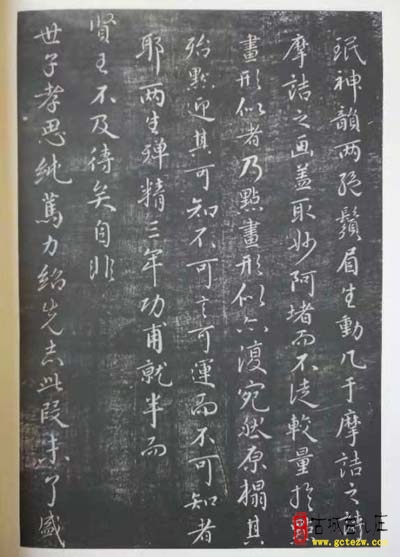 珉神韻两絕鬚眉生動几于摩詰之詩
摩詰之画蓋取妙阿堵而不徒較量於
畫形似者乃點畫形似亦復宛然原搨其
殆默迎其可知不可言可運而不可知者
耶两生殫精三年功甫就半而
賢王不及待矣自非
世子孝思純篤力紹先志此段未了盛
www.gctezw.com